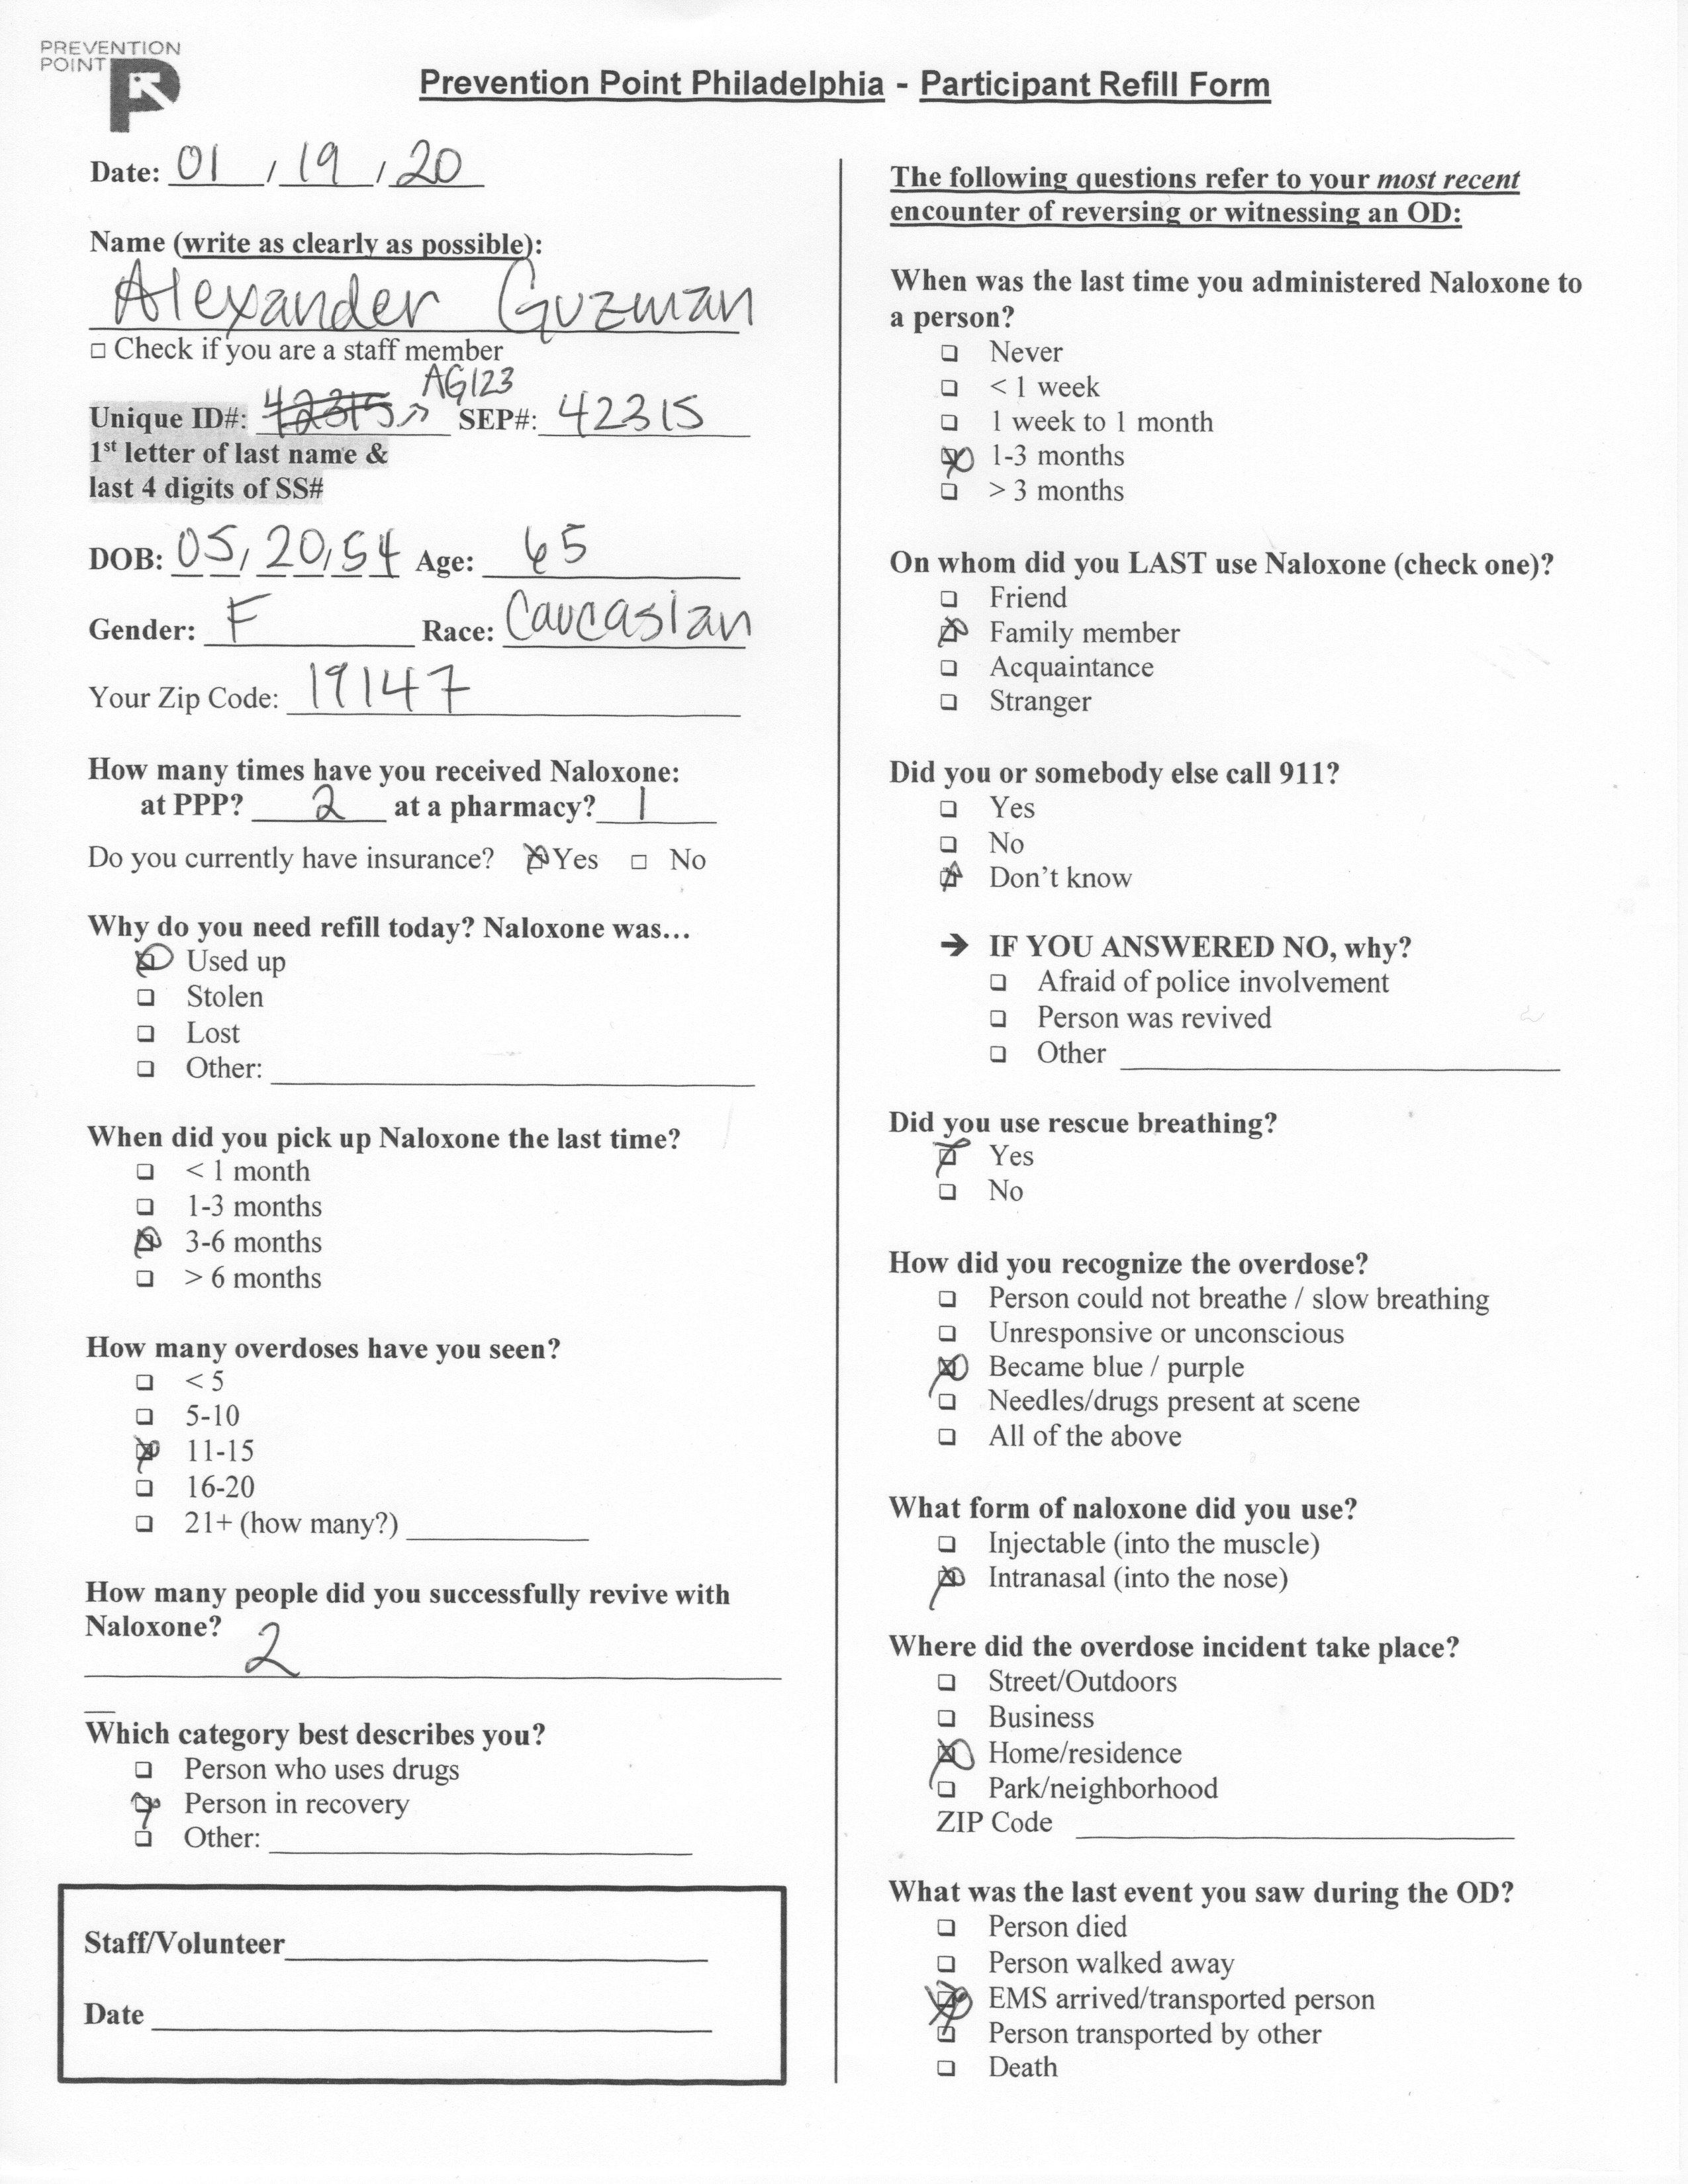 PREVENTION
POINT
Prevention Point Philadelphia - Participant Refill Form
Date: 01 / 19 / 20
Name (write as clearly as possible):
Alexander Guzman
□ Check if you are a staff member
AG123
Unique ID#: 42315 SEP#: 42315
1st letter of last name &
last 4 digits of SS#
DOB: 05/20/54 Age: 65
Gender: F Race: Caucasian
Your Zip Code: 19147
How many times have you received Naloxone:
at PPP? 2 at a pharmacy? 1
Do you currently have insurance? ☒ Yes □ No
Why do you need refill today? Naloxone was...
☒ Used up
❑ Stolen
❑ Lost
❑ Other:
When did you pick up Naloxone the last time?
❑ < 1 month
❑ 1-3 months
☒ 3-6 months
❑ > 6 months
How many overdoses have you seen?
❑ < 5
❑ 5-10
☒ 11-15
❑ 16-20
❑ 21+ (how many?)
How many people did you successfully revive with
Naloxone?
2
Which category best describes you?
❑ Person who uses drugs
☒ Person in recovery
❑ Other:
Staff/Volunteer
Date
The following questions refer to your most recent
encounter of reversing or witnessing an OD:
When was the last time you administered Naloxone to
a person?
❑ Never
❑ < 1 week
❑ 1 week to 1 month
☒ 1-3 months
❑ > 3 months
On whom did you LAST use Naloxone (check one)?
❑ Friend
☒ Family member
❑ Acquaintance
❑ Stranger
Did you or somebody else call 911?
❑ Yes
❑ No
☒ Don't know
→ IF YOU ANSWERED NO, why?
❑ Afraid of police involvement
❑ Person was revived
❑ Other
Did you use rescue breathing?
☒ Yes
❑ No
How did you recognize the overdose?
❑ Person could not breathe / slow breathing
❑ Unresponsive or unconscious
☒ Became blue / purple
❑ Needles/drugs present at scene
❑ All of the above
What form of naloxone did you use?
❑ Injectable (into the muscle)
☒ Intranasal (into the nose)
Where did the overdose incident take place?
❑ Street/Outdoors
❑ Business
☒ Home/residence
❑ Park/neighborhood
ZIP Code
What was the last event you saw during the OD?
❑ Person died
❑ Person walked away
☒ EMS arrived/transported person
❑ Person transported by other
❑ Death